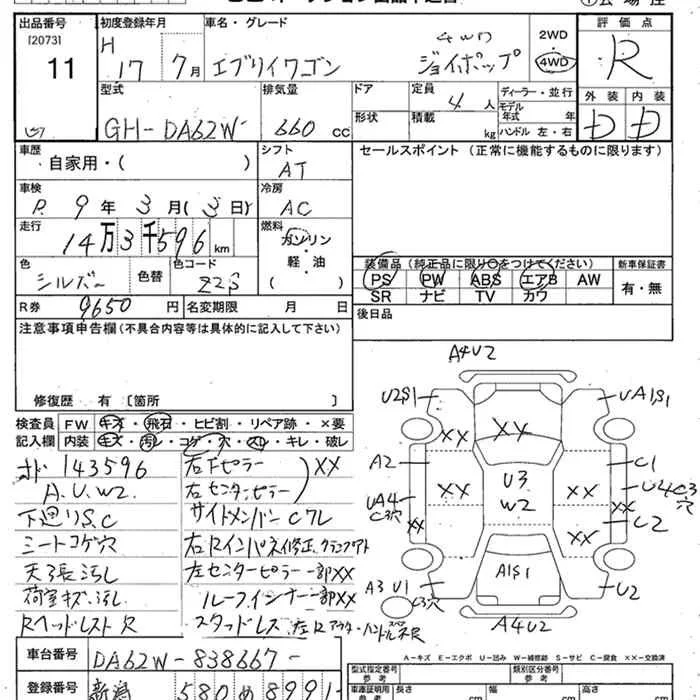 出品番号 初度登録年月 車名・グレード 2WD 評価点
[2073] H 4WD 4WD
11 17 7月 エブリイワゴン ジョイポップ R
型式 排気量 ドア 定員 4人 ディーラー・並行 外装 内装
モデル年式 年
GH-DA62W 660 cc 形状 積載 kg ハンドル 左・右 D D
車歴 シフト セールスポイント (正常に機能するものに限ります)
自家用・( ) AT
車検 冷房
R. 9年 3月(3日) AC
走行 燃料
14万3千596 km ガソリン
軽・油
( )
色 シルバー 色替 色コード Z2S
装備品(純正品に限り○をつけてください) 新車保証書
PS PW ABS エアB AW 有・無
SR ナビ TV カワ
R券 9650円 名変期限 月 日 後日品
注意事項申告欄(不具合内容等は具体的に記入して下さい)
修復歴 有 〔箇所 〕
検査員 FW キズ・飛石・ヒビ割・リペア跡・×要
記入欄 内装 キズ・汚レ・コゲ・穴・スレ・キレ・破レ
143596 右Fピラー XX
A.U.W2 右センターピラー
下廻りS.C サイドメンバーCワレ
シートコゲ穴 右Rインパネ修正、クランプアト
天張汚し 左センターピラー一部XX
荷室キズ、汚し ルーフインナー一部XX
Rヘッドレスト欠 スタッドレス
A4U2
U2S1 UA1S1
XX XX
A2 C1
U3
W2
XX XX
UA4 U4C3
C3穴 穴
XX XX
U2
XX
A3 U1 A1S1 U2
C3穴
A4U2
A-キズ E-エクボ U-凹み W-補修跡 S-サビ C-腐食 XX-交換済
車台番号 DA62W-838667-
登録番号 新潟 580 め 8991
型式指定番号 類別区分番号
車庫証明用 参考 長さ cm 幅 cm 高さ cm